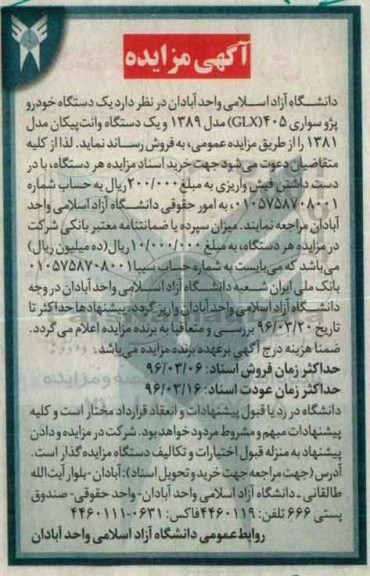 آگهی مزایده
دانشگاه آزاد اسلامی واحد آبادان در نظر دارد یک دستگاه خودرو
پژو سواری ۴۰۵ (GLX) مدل ۱۳۸۹ و یک دستگاه وانت پیکان مدل
۱۳۸۱ را از طریق مزایده عمومی، به فروش رساند نماید. لذا از کلیه
متقاضیان دعوت می شود جهت خرید اسناد مزایده هر دستگاه، با در
دست داشتن فیش واریزی به مبلغ ۲۰۰/۰۰۰ ریال به حساب شماره
۰۱۰۵۷۵۸۷۰۸۰۰۱، به امور حقوقی دانشگاه آزاد اسلامی واحد
آبادان مراجعه نمایند. میزان سپرده یا ضمانتنامه معتبر بانکی شرکت
در مزایده هر دستگاه، به مبلغ ۱۰/۰۰۰/۰۰۰ ریال (ده میلیون ریال)
می باشد که می بایست به شماره حساب سیبا ۰۱۰۵۷۵۸۷۰۸۰۰۱
بانک ملی ایران شعبه دانشگاه آزاد اسلامی واحد آبادان در وجه
دانشگاه آزاد اسلامی واحد آبادان واریز گردد. پیشنهادها حداکثر تا
تاریخ ۹۶/۰۳/۲۰ بررسی و متعاقبا به برنده مزایده اعلام می گردد.
ضمنا هزینه درج آگهی بر عهده برنده مزایده می باشد.
حداکثر زمان فروش اسناد: ۹۶/۰۳/۰۶
حداکثر زمان عودت اسناد: ۹۶/۰۳/۱۶
دانشگاه در رد یا قبول پیشنهادات و انعقاد قرارداد مختار است و کلیه
پیشنهادات مبهم و مشروط مردود خواهد بود. شرکت در مزایده و دادن
پیشنهاد به منزله قبول اختیارات و تکالیف دستگاه مزایده گذار است.
آدرس (جهت مراجعه جهت خرید و تحویل اسناد): آبادان - بلوار آیت الله
طالقانی - دانشگاه آزاد اسلامی واحد آبادان - واحد حقوقی - صندوق
پستی ۶۶۶ تلفن: ۴۴۶۰۱۱۹ فاکس: ۰۶۳۱-۴۴۶۰۱۱۱
روابط عمومی دانشگاه آزاد اسلامی واحد آبادان